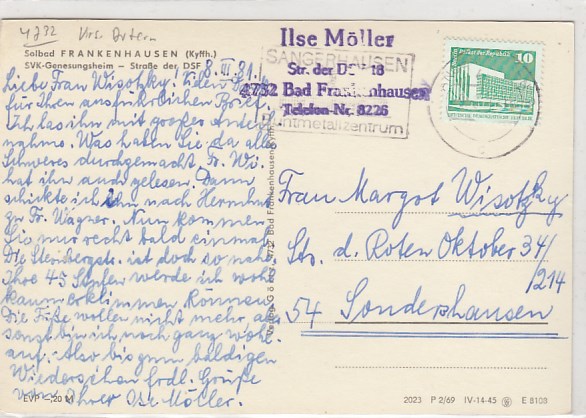 4732 Krs. Artern
Solbad FRANKENHAUSEN (Kyffh.)
SVK-Genesungsheim – Straße der DSF
8. III 81.
Liebe Frau Wisotzky! Vielen Dank
für Ihren ausführlichen Brief.
Ich las ihn mit großer Anteil-
nahme. Was haben Sie da alles
Schweres durchgemacht. Fr. Wi.
hat ihn auch gelesen. Dann
schickte ich ihn nach Herrnhut
zu Fr. Wagner. Nun kommen
Sie nur recht bald einmal.
Die ist doch so nahe
Ihre 45 Stufen werde ich wohl
kaum erklimmen können.
Die Füße wollen nicht mehr, an-
sonst bin ich noch ganz wohl-
auf. Also bis zum baldigen
Wiedersehen frdl. Grüße
von Ihrer Ilse Möller.
EVP –,20 M
Ilse Möller
Str. der DSF 18
4732 Bad Frankenhausen
Telefon-Nr. 8226
SANGERHAUSEN
ntmetallzentrum
10
Palast der Republik
DEUTSCHE DEMOKRATISCHE REPUBLIK
Frau Margot Wisotzky
Str. d. Roten Oktober 34/
214
54 Sondershausen
2023 P 2/69 IV-14-45 E 8108